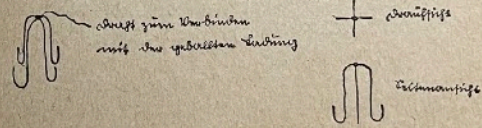 Draht zum Verbinden
mit der geballten Ladung
Draufsicht
Seitenansicht